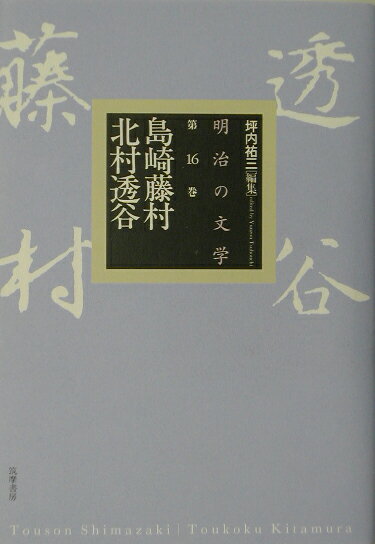 透谷
藤村
坪内祐三[編集]
edited by Yuzou Tsubouchi
明治の文学
第16巻
島崎藤村
北村透谷
筑摩書房
Touson Shimazaki | Toukoku Kitamura